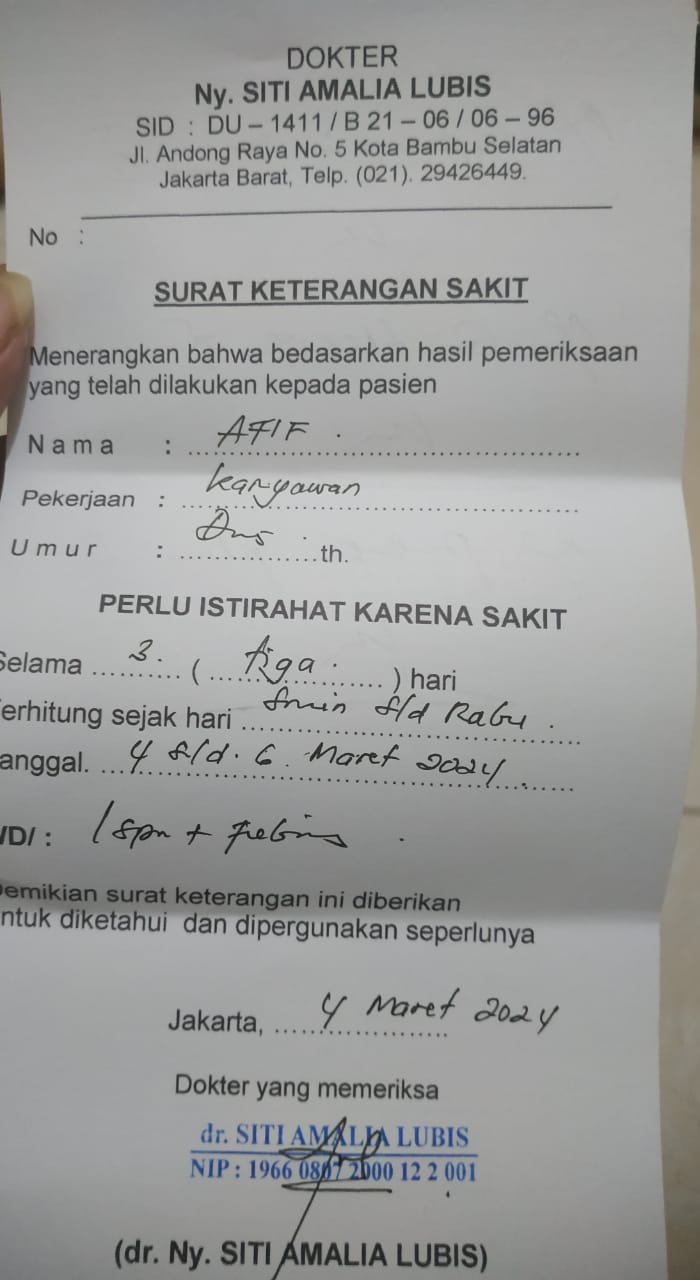 DOKTER
Ny. SITI AMALIA LUBIS
SID : DU – 1411 / B 21 – 06 / 06 – 96
Jl. Andong Raya No. 5 Kota Bambu Selatan
Jakarta Barat, Telp. (021). 29426449.
No :
SURAT KETERANGAN SAKIT
Menerangkan bahwa bedasarkan hasil pemeriksaan
yang telah dilakukan kepada pasien
Nama : AFIF
Pekerjaan : karyawan
Umur : th.
PERLU ISTIRAHAT KARENA SAKIT
Selama 3 (Tiga) hari
erhitung sejak hari s/d Rabu
anggal. 4 s/d. 6 Maret 2024
/D/ : Ispa + Febris
Demikian surat keterangan ini diberikan
ntuk diketahui dan dipergunakan seperlunya
Jakarta, 4 Maret 2024
Dokter yang memeriksa
dr. SITI AMALIA LUBIS
NIP : 1966 0807 2000 12 2 001
(dr. Ny. SITI AMALIA LUBIS)